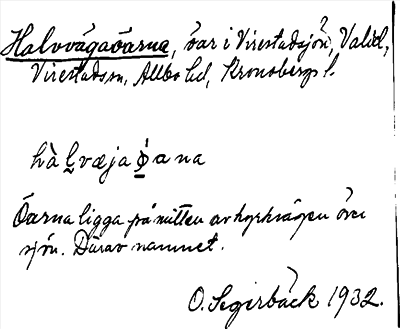 Halvvägaöarna, öar i Virestadsjön, Valid,
Virestads sn, Allbo hd, Kronobergs l.
hàl̬væja ö̀ ana
Öarna ligga på mitten av kyrkvägen över
sjön. Därav namnet.
O. Segerbäck 1932.